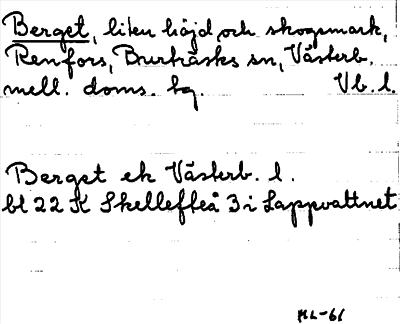 Berget, liten höjd och skogsmark,
Renfors, Burträsks sn, Västerb.
mell. doms. bg. Vb. l.
Berget ek Västerb. l.
bl 22 K Skellefteå 3 i Lappvattnet
ML-61